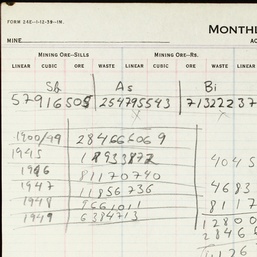 FORM 24E-1-12-39-1M.
MONTHL
MINE
AC
MINING ORE-SILLS MINING ORE-RS.
LINEAR CUBIC ORE WASTE LINEAR CUBIC ORE WASTE LINEAR
Sb As Bi
57916505 254795543 71322237
1900/44 284666069
1945 18933872 4045
1946 81170740
1947 11856736 4683
1948 9661011 8117
1949 6384713 12800
28465